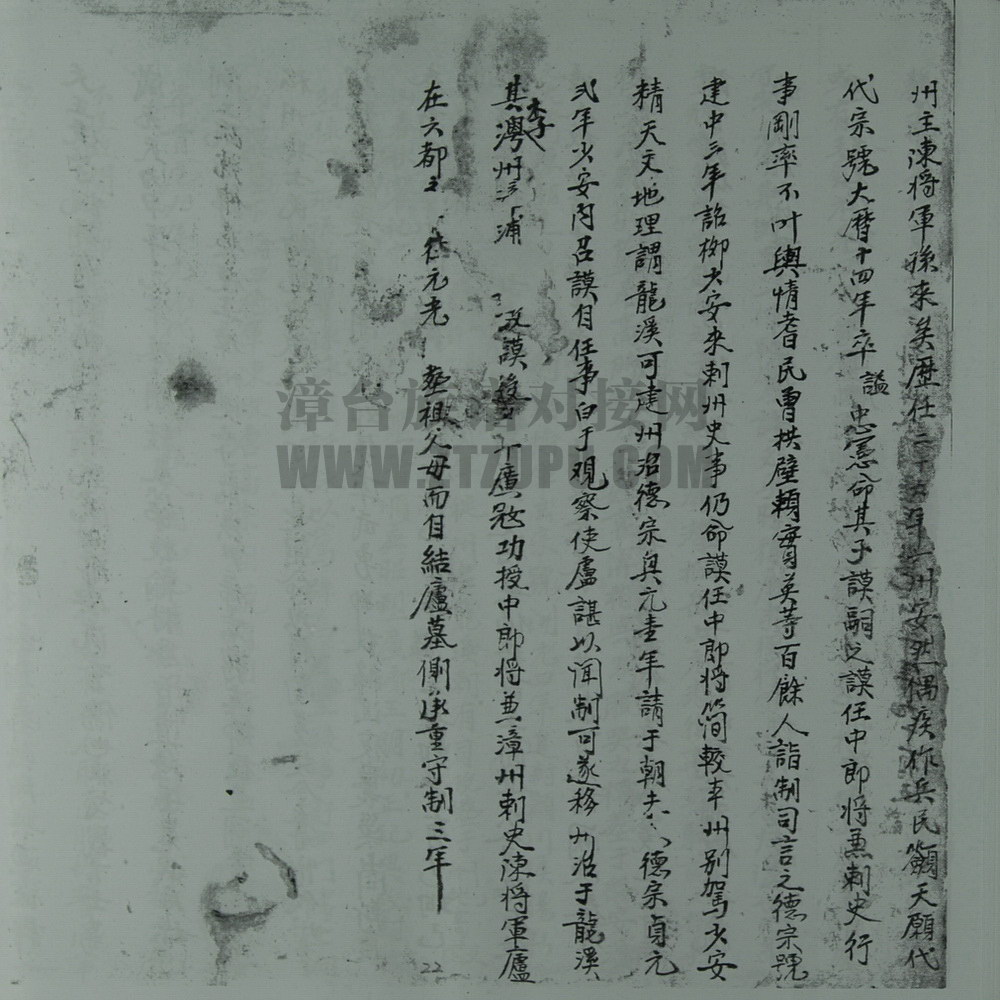 州主陳將軍孫來矣歷任二十六年一州安然偶疾作兵民籲天願代
代宗號大曆十四年卒 謚忠憲命其子謨嗣之謨任中郎將兼刺史行
事剛率不叶輿情耆民曾拱璧賴實英等百餘人詣制司言之德宗號
建中三年詔柳少安來刺州史事仍命謨任中郎將簡較本州別駕少安
精天文地理謂龍溪可建州治德宗興元壹年請于朝 德宗貞元
弍年少安內召謨自任事白于观察使盧諶以聞制可遂移州治于龍溪
其李澳州 浦 及謨 廣冦功授中郎將兼漳州刺史陳將軍廬
在六都 元光 祖父母而自結廬墓側承重守制三年
22
漳台族谱对接网
WWW.ETZUPU.COM